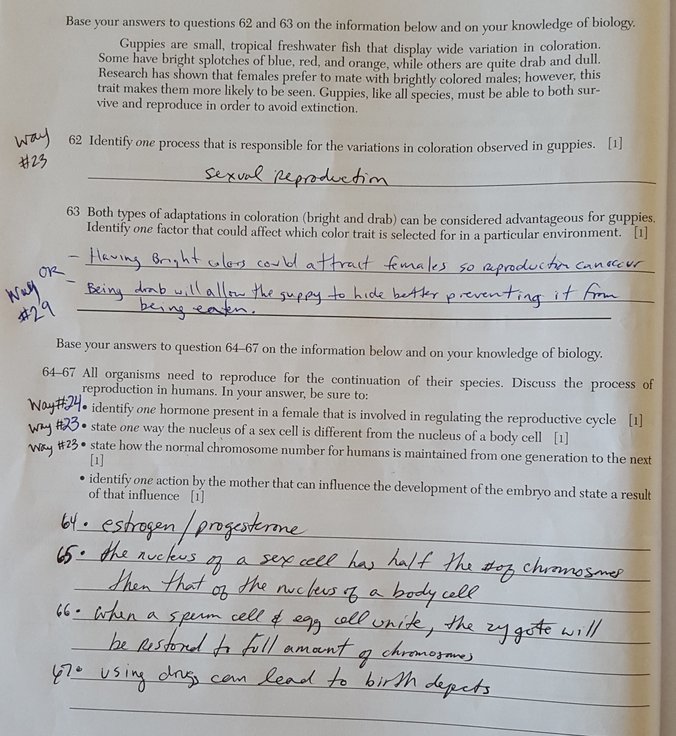 Base your answers to questions 62 and 63 on the information below and on your knowledge of biology.
Guppies are small, tropical freshwater fish that display wide variation in coloration.
Some have bright splotches of blue, red, and orange, while others are quite drab and dull.
Research has shown that females prefer to mate with brightly colored males; however, this
trait makes them more likely to be seen. Guppies, like all species, must be able to both sur-
vive and reproduce in order to avoid extinction.
Way
#23
62 Identify one process that is responsible for the variations in coloration observed in guppies. [1]
sexual reproduction
63 Both types of adaptations in coloration (bright and drab) can be considered advantageous for guppies.
Identify one factor that could affect which color trait is selected for in a particular environment. [1]
- Having Bright colors could attract females so reproduction can occur
OR
Way
#29
- Being drab will allow the guppy to hide better preventing it from
being eaten.
Base your answers to question 64–67 on the information below and on your knowledge of biology.
64–67 All organisms need to reproduce for the continuation of their species. Discuss the process of
reproduction in humans. In your answer, be sure to:
Way #24 • identify one hormone present in a female that is involved in regulating the reproductive cycle [1]
Way #23 • state one way the nucleus of a sex cell is different from the nucleus of a body cell [1]
Way #23 • state how the normal chromosome number for humans is maintained from one generation to the next
[1]
• identify one action by the mother that can influence the development of the embryo and state a result
of that influence [1]
64 • estrogen/progesterone
65 • the nucleus of a sex cell has half the # of chromosomes
then that of the nucleus of a body cell
66 • when a sperm cell & egg cell unite, the zygote will
be restored to full amount of chromosomes
67 • using drugs can lead to birth depects